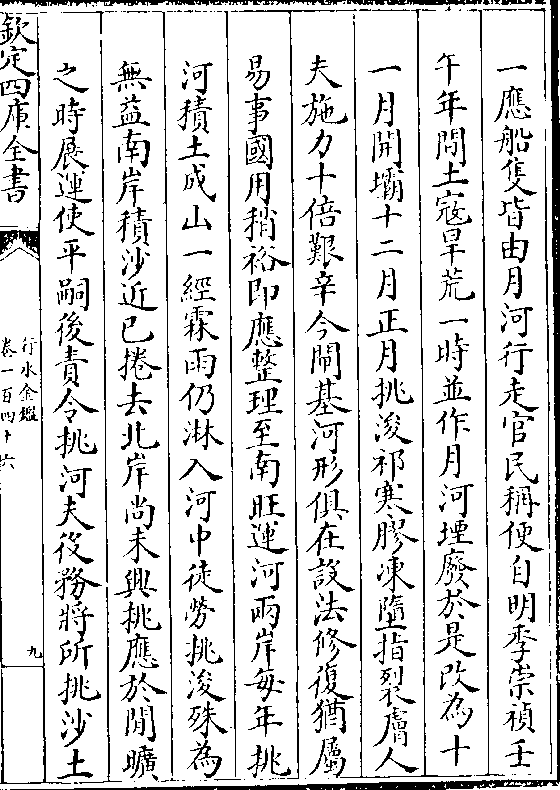 一應船隻皆由月河行走官民稱便自明季崇禎壬
午年間土寇旱荒一時並作月河堙廢於是改為十
一月開壩十二月正月挑浚祁寒膠凍墮指裂膚人
夫施力十倍艱辛今閘基河形俱在設法修復猶屬
易事國用稍裕即應整理至南旺運河兩岸每年挑
河積土成山一經霖雨仍淋入河中徒勞挑浚殊為
無益南岸積沙近已捲去北岸尚未興挑應於閒曠
之時展運使平嗣後責令挑河夫役務將所挑沙土
欽定四庫全書
行水金鑑
卷一百四十六
九